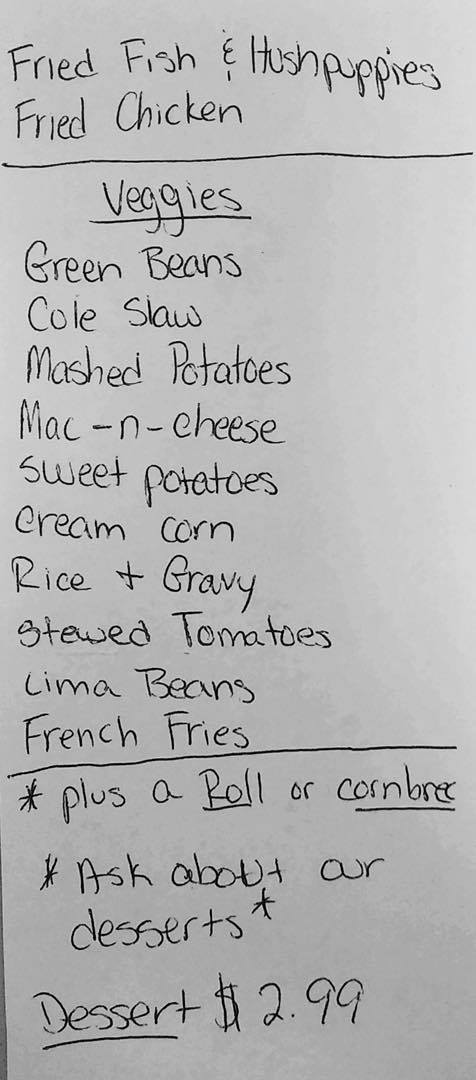 Fried Fish & Hushpuppies
Fried Chicken
Veggies
Green Beans
Cole Slaw
Mashed Potatoes
Mac-n-cheese
Sweet potatoes
Cream corn
Rice + Gravy
Stewed Tomatoes
Lima Beans
French Fries
* plus a Roll or cornbre
* Ask about our
desserts*
Dessert $2.99